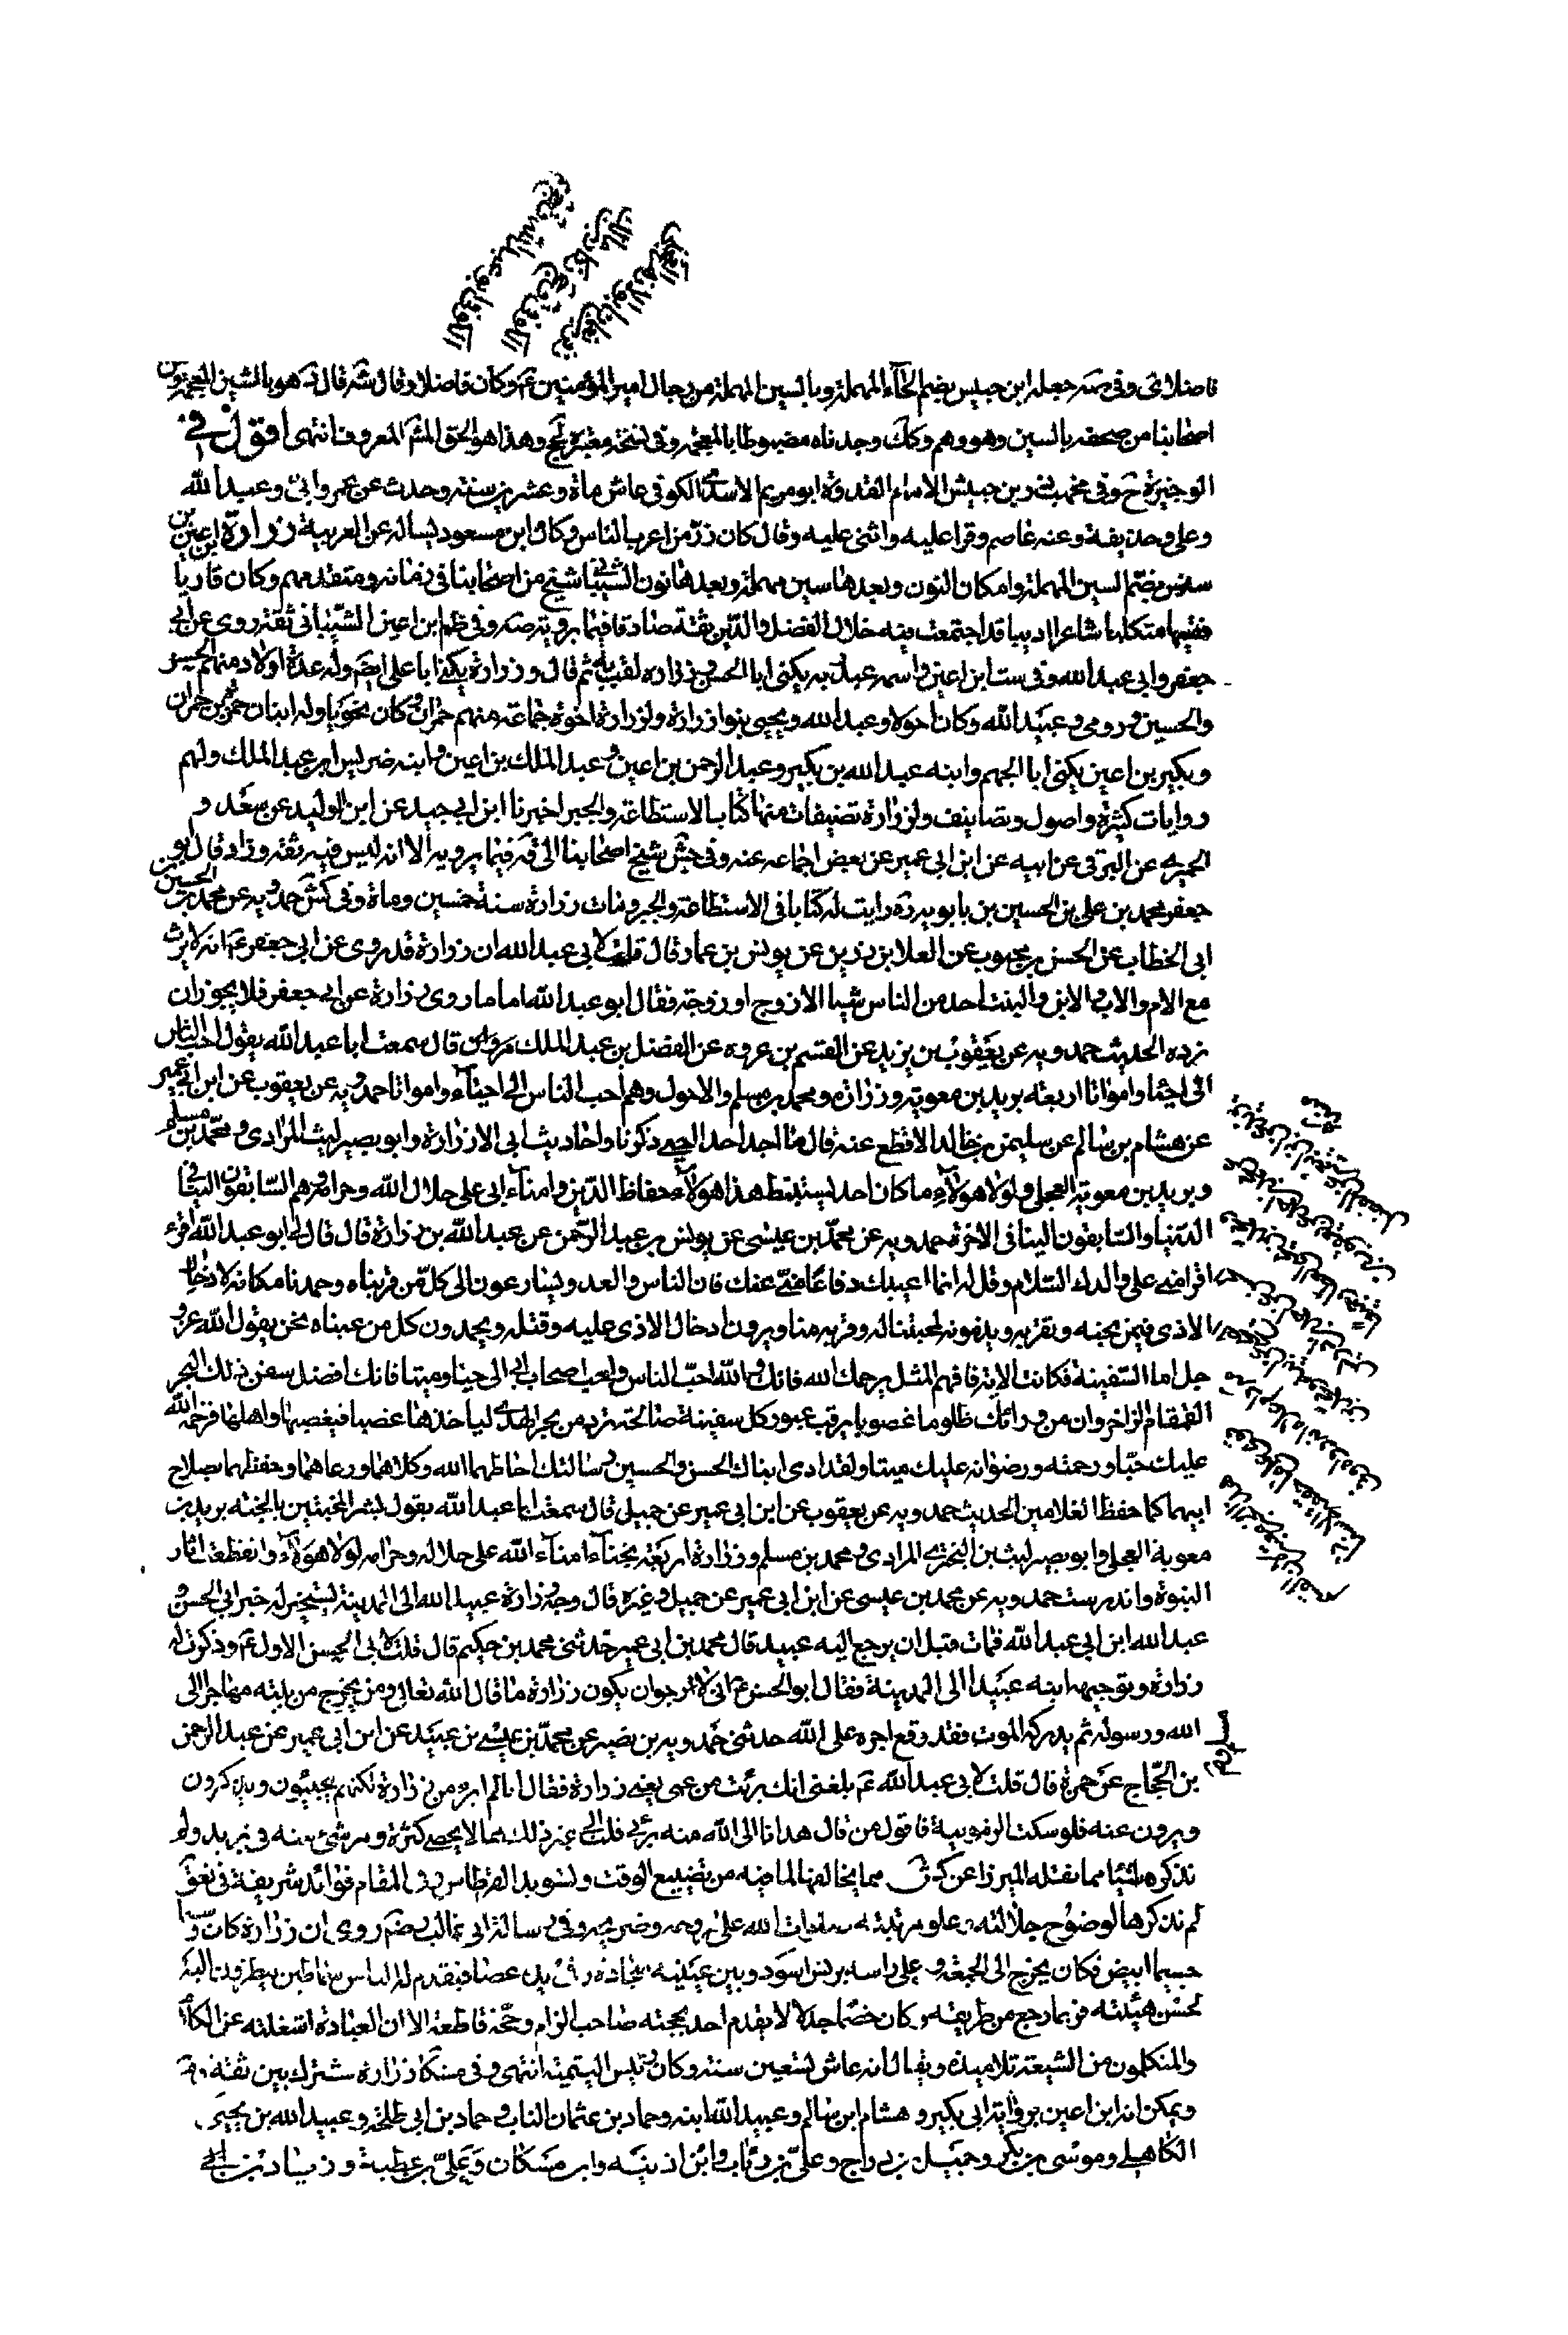 فاضلا انتهى وفي صه جعله ابن حبيس بضم الحاء المهملة وبالسين المهملة من رجال امير المؤمنين ع وكان فاضلا وقال شه قال د هو بالشين المعجمة ومن
اصحابنا من صحفه بالسين وهو وهم وكك وجدناه مضبوطا بالمعجمة وفي نسخة معتبرة لجخ وهذا هو الحق المشهور المعروف انتهى اقول في
الوجيزة ح وفي مخهب زر بن حبيش الامام القدوة ابو مريم الاسدي الكوفي عاش ماة وعشرين سنة وحدث عن عمر وابي وعبد الله
وعلي وحذيفة وعنه عاصم وقرا عليه واثنى عليه وقال كان زر من اعرب الناس وكان ابن مسعود يساله عن العربية زرارة بن اعين بن
سنسن بضم السين المهملة واسكان النون وبعدها سين مهملة وبعدها نون الشيباني شيخ من اصحابنا في زمانه ومتقدمهم وكان قاريا
فقيها متكلما شاعرا اديبا قد اجتمعت فيه خلال الفضل والدين ثقة صادقا فيما يرويه صه وفي ظم ابن اعين الشيباني ثقة روى عن ابي
جعفر وابي عبد الله وفي ست ابن اعين واسمه عبد ربه يكنى ابا الحسن وزرارة لقب له ثم قال وزرارة يكنى ابا علي ايضا وله عدة اولاد منهم الحسن
والحسين ورومي وعبيد الله وكان احول وعبد الله ويحيى بنو زرارة ولزرارة اخوة جماعة منهم حمران وكان نحويا وله ابنان حمزة بن حمران
وبكير بن اعين يكنى ابا الجهم وابنه عبد الله بن بكير وعبد الرحمن بن اعين وعبد الملك بن اعين وابنه ضريس بن عبد الملك ولهم
روايات كثيرة واصول وتصانيف ولزرارة تصنيفات منها كتاب الاستطاعة والجبر اخبرنا ابن ابي جيد عن ابن الوليد عن سعد و
الحميري عن البرقي عن ابيه عن ابن ابي عمير عن بعض اصحابه عنه وفي جش شيخ اصحابنا الى قوله فيما يرويه الا انه ليس فيه ثقة وزاد قال ابو
جعفر محمد بن علي بن الحسين بن بابويه ره رايت له كتابا في الاستطاعة والجبر ومات زرارة سنة خمسين وماة وفي كش حمدويه عن محمد بن الحسين بن
ابي الخطاب عن الحسن بن محبوب عن العلا بن رزين عن يونس بن عمار قال قلت لابي عبد الله ان زرارة قد روى عن ابي جعفر ع انه لا يرث
مع الام والاب والابن والبنت احد من الناس شيئا الا زوج او زوجة فقال ابو عبد الله اما ما روى زرارة عن ابي جعفر فلا يجوز ان
نرده الحديث حمدويه عن يعقوب بن يزيد عن القسم بن عروة عن الفضل بن عبد الملك قال سمعت ابا عبد الله يقول احب الناس
الي احياء وامواتا اربعة بريد بن معوية وزرارة ومحمد بن مسلم والاحول وهم احب الناس الي احياء وامواتا حمدويه عن يعقوب عن ابن ابي عمير
عن هشام بن سالم عن سليمن بن خالد الاقطع عنه قال ما اجد احدا احيى ذكرنا واحاديث ابي الا زرارة وابو بصير ليث المرادي ومحمد بن مسلم
وبريد بن معوية العجلي ولولا هولاء ما كان احد يستنبط هذا هولاء حفاظ الدين وامناء ابي على حلال الله وحرامه وهم السابقون الينا في
الدنيا والسابقون الينا في الاخرة حمدويه عن محمد بن عيسى عن يونس بن عبد الرحمن عن عبد الله بن زرارة قال قال لي ابو عبد الله اقرء
اقرا مني على والدك السلام وقل له انما اعيبك دفاعا مني عنك فان الناس والعدو يسارعون الى كل من قربناه وحمدنا مكانه لادخال
الاذى فيمن نحبه ونقربه ويذمونه لمحبتنا له وقربه منا ويرون ادخال الاذى عليه وقتله ويحمدون كل من عبناه نحن يقول الله عز و
جل اما السفينة فكانت الاية فافهم المثل يرحمك الله فانك والله احب الناس واحب اصحاب ابي الي حيا وميتا فانك افضل سفن ذلك البحر
القمقام الزاخر وان من ورائك ظلوما غصوبا يرقب عبور كل سفينة صالحة ترد من بحر الهدى لياخذها غصبا فيغصبها واهلها فرحمة الله
عليك حيا ورحمته ورضوانه عليك ميتا ولقد ادى ابناك الحسن والحسين رسالتك احاطهما الله وكلاهما ورعاهما وحفظهما بصلاح
ابيهما كما حفظ الغلامين الحديث حمدويه عن يعقوب عن ابن ابي عمير عن جميل قال سمعت ابا عبد الله يقول بشر المخبتين بالجنة بريد بن
معوية العجلي وابو بصير ليث بن البختري المرادي ومحمد بن مسلم وزرارة اربعة نجباء امناء الله على حلاله وحرامه لولا هولاء انقطعت اثار
النبوة واندرست حمدويه عن محمد بن عيسى عن ابن ابي عمير عن جميل وغيره قال وجه زرارة عبيد الله الى المدينة يستخبر له خبر ابي الحسن و
عبد الله ابن ابي عبد الله فمات قبل ان يرجع اليه عبيد قال محمد بن ابي عمير حدثني محمد بن حكيم قال قلت لابي الحسن الاول ع وذكرت له
زرارة وتوجيهه ابنه عبيدا الى المدينة فقال ابو الحسن ع اني لارجو ان يكون زرارة ما قال الله تعالى ومن يخرج من بيته مهاجرا الى
الله ورسوله ثم يدركه الموت فقد وقع اجره على الله حدثني حمدويه بن نصير عن محمد بن عيسى بن عبيد عن ابن ابي عمير عن عبد الرحمن
بن الحجاج عن حمزة قال قلت لابي عبد الله ع بلغني انك برئت من عمي يعني زرارة فقال انا لم ابرء من زرارة لكنهم يجيئون ويذكرون
ويروون عنه فلو سكت الزمونيه فاقول من قال هذا انا الى الله منه برئ قلت الى غير ذلك مما لا يحصى كثرة ومر شئ منه في بريد ولم
نذكر شيئا مما نقله الميرزا عن كش مما يخالفها لما فيه من تضييع الوقت وتسويد القرطاس وفي المقام فوائد شريفة في تعق
لم نذكرها لوضوح جلالته وعلو مرتبته صلوات الله على روحه وضريحه وفي رسالة ابي غالب رضه روى ان زرارة كان وسيما
جسيما ابيض فكان يخرج الى الجمعة وعلى راسه برنس اسود وبين عينيه سجادة وفي يده عصا فيقوم له الناس سماطين ينظرون اليه
لحسن هيئته فربما رجع من طريقه وكان خصما جدلا لا يقوم احد بحجته صاحب الزام وحجة قاطعة الا ان العبادة اشغلته عن الكلام
والمتكلمون من الشيعة تلاميذه ويقال انه عاش تسعين سنة وانتهى وفي مشكا زرارة مشترك بين ثقة وغيره
ويمكن انه ابن اعين برواية ابي بكير وهشام ابن سالم وعبيد الله ابنه وحماد بن عثمان الناب وحماد بن ابي طلحة وعبيد الله بن يحيى
الكاهلي وموسى بن بكر وجميل بن دراج وعلي بن رئاب وابن اذينه وابن مسكان وعلي بن عطية وزياد بن ابي